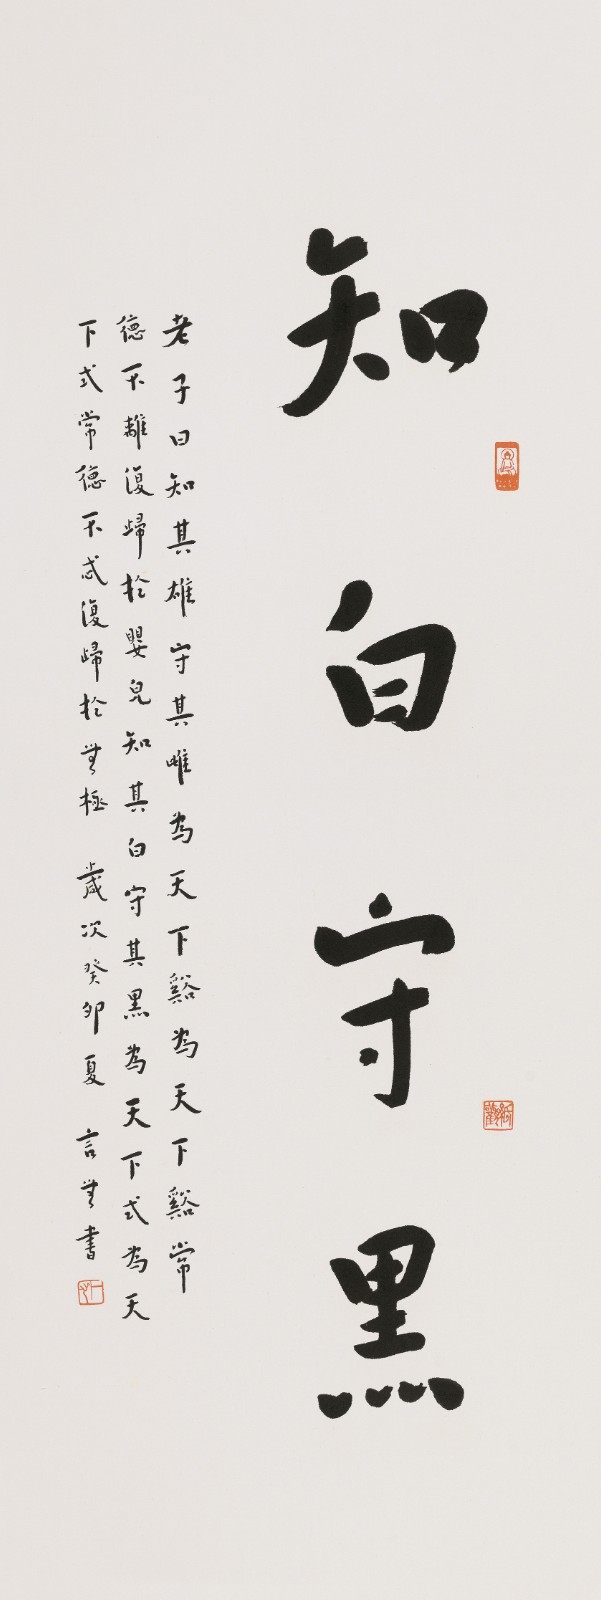 知白守黑
老子曰知其雄守其雌為天下谿為天下谿常
德不離復歸於嬰兒知其白守其黑為天下式為天
下式常德不忒復歸於無極 歲次癸卯夏 言無書